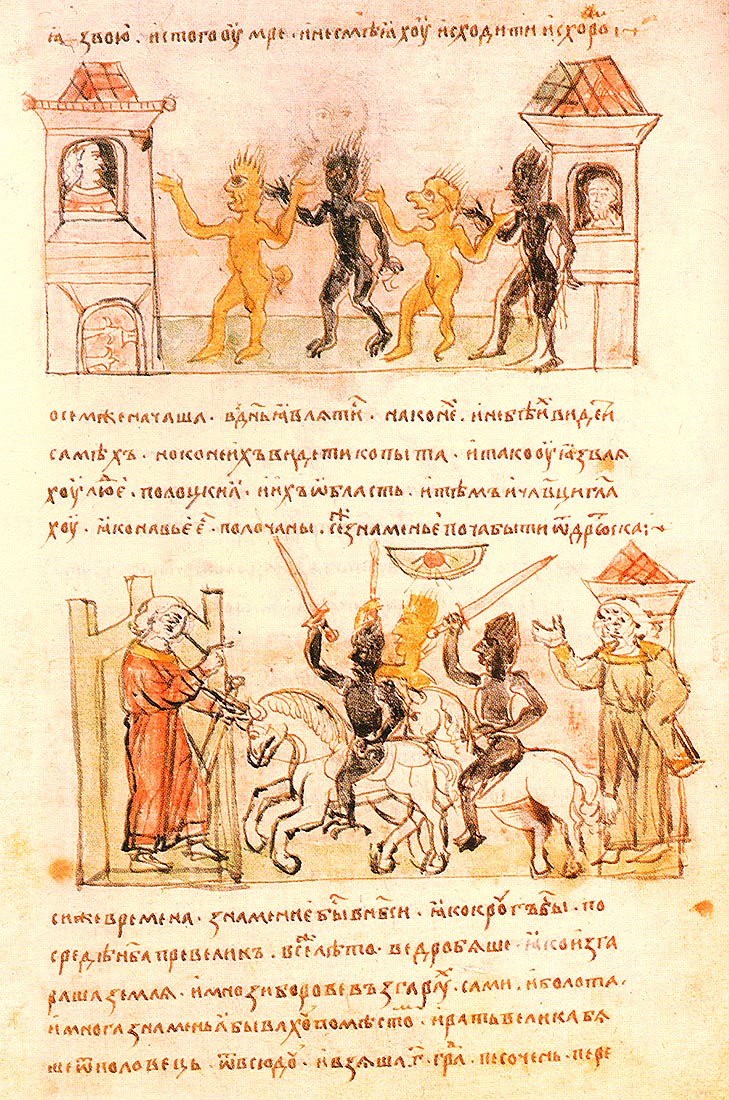 ꙗзвою · и с того оумре · и не смѣꙗхоу исходити исхоро
по сем же нача
въ дн҃ь ꙗвлѧти · на коне · и не бѣ и видети
самѣхъ · но конеи ихъ видети копыта · и тако оуꙗзвлѧ
хоу люд · полоцкиꙗ · и ихъ ѡбласть · и тѣмъ и чл҃вци гл҃а
хоу · ꙗко навье · полочаны · се же знаменье поча быти ѿ дрьюска
си же времена · знамение быⷭ в нб҃си · ꙗко кроугъ бы · по
средѣ нб҃а превелик · все лѣто · ведро бѧше · ꙗко изга
раша землѧ · и мнози борове възгарахоу сѧ сами · и болота ·
и многа знаменьꙗ бывахоу по мѣстомъ · и рать велика бѧ
ше ѿ половець · ѿвсюдоу · и взѧша · г҃ · град · песочень · пере